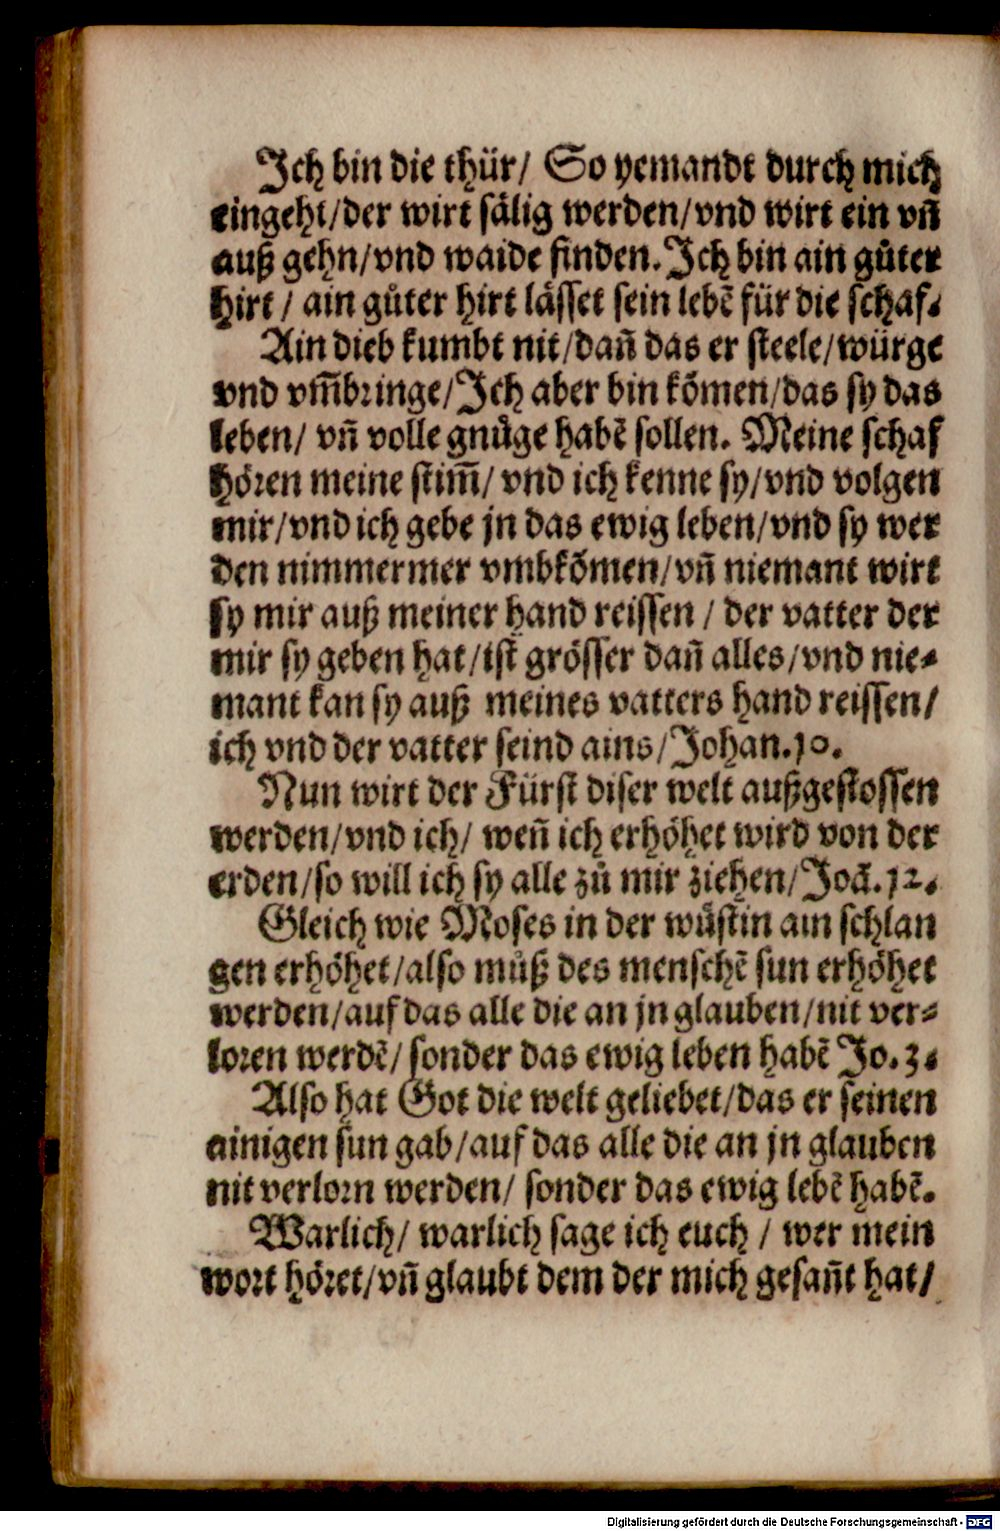 Ich bin die thür/ So yemandt durch mich
eingeht/der wirt sälig werden/vnd wirt ein vñ
auß gehn/vnd waide finden. Ich bin ain gůter
hirt / ain gůter hirt lässet sein lebẽ für die schaf.
Ain dieb kumbt nit/dañ das er steele/würge
vnd vm̃bringe/Ich aber bin kõmen/das sy das
leben/ vñ volle gnůge habẽ sollen. Meine schaf
hören meine stim̃/ vnd ich kenne sy/vnd volgen
mir/vnd ich gebe jn das ewig leben/vnd sy wer
den nimmermer vmbkõmen/vñ niemant wirt
sy mir auß meiner hand reissen / der vatter der
mir sy geben hat/ist grösser dañ alles/vnd nie⸗
mant kan sy auß meines vatters hand reissen/
ich vnd der vatter seind ains/Johan.10.
Nun wirt der Fürst diser welt außgestossen
werden/vnd ich/ weñ ich erhöhet wird von der
erden/so will ich sy alle zů mir ziehen/Joã.12.
Gleich wie Moses in der wůstin ain schlan
gen erhöhet/also můß des menschẽ sun erhöhet
werden/auf das alle die an jn glauben/nit ver⸗
loren werdẽ/ sonder das ewig leben habẽ Jo.3.
Also hat Got die welt geliebet/das er seinen
ainigen sun gab/auf das alle die an jn glauben
nit verlorn werden/ sonder das ewig lebẽ habẽ.
Warlich/ warlich sage ich euch / wer mein
wort höret/vñ glaubt dem der mich gesañt hat/
Digitalisierung gefördert durch die Deutsche Forschungsgemeinschaft - DFG